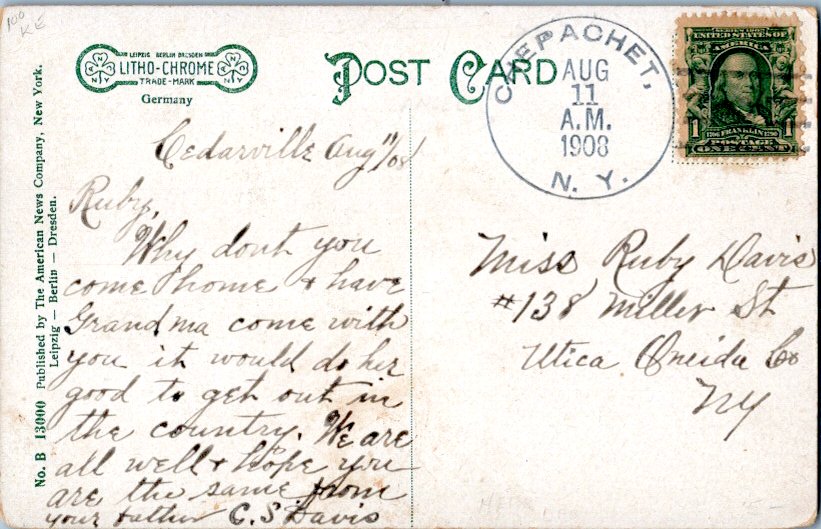 100
KE
LEIPZIG BERLIN DRESDEN
LITHO-CHROME
TRADE-MARK
ANCNY
ANCNY
Germany
POST CARD
CHEPACHET,
AUG
11
A.M.
1908
N. Y.
SERIES 1902
UNITED STATES OF
AMERICA
1 1706 FRANKLIN 1790 1
POSTAGE
ONE CENT
No. B 13000 Published by The American News Company, New York.
Leipzig — Berlin — Dresden.
Cedarville Aug 11/08
Ruby,
Why dont you
come home & have
Grandma come with
you it would do her
good to get out in
the country. We are
all well & hope you
are the same from
your father C. S. Davis
Miss Ruby Davis
#138 Miller St
Utica Oneida Co
NY